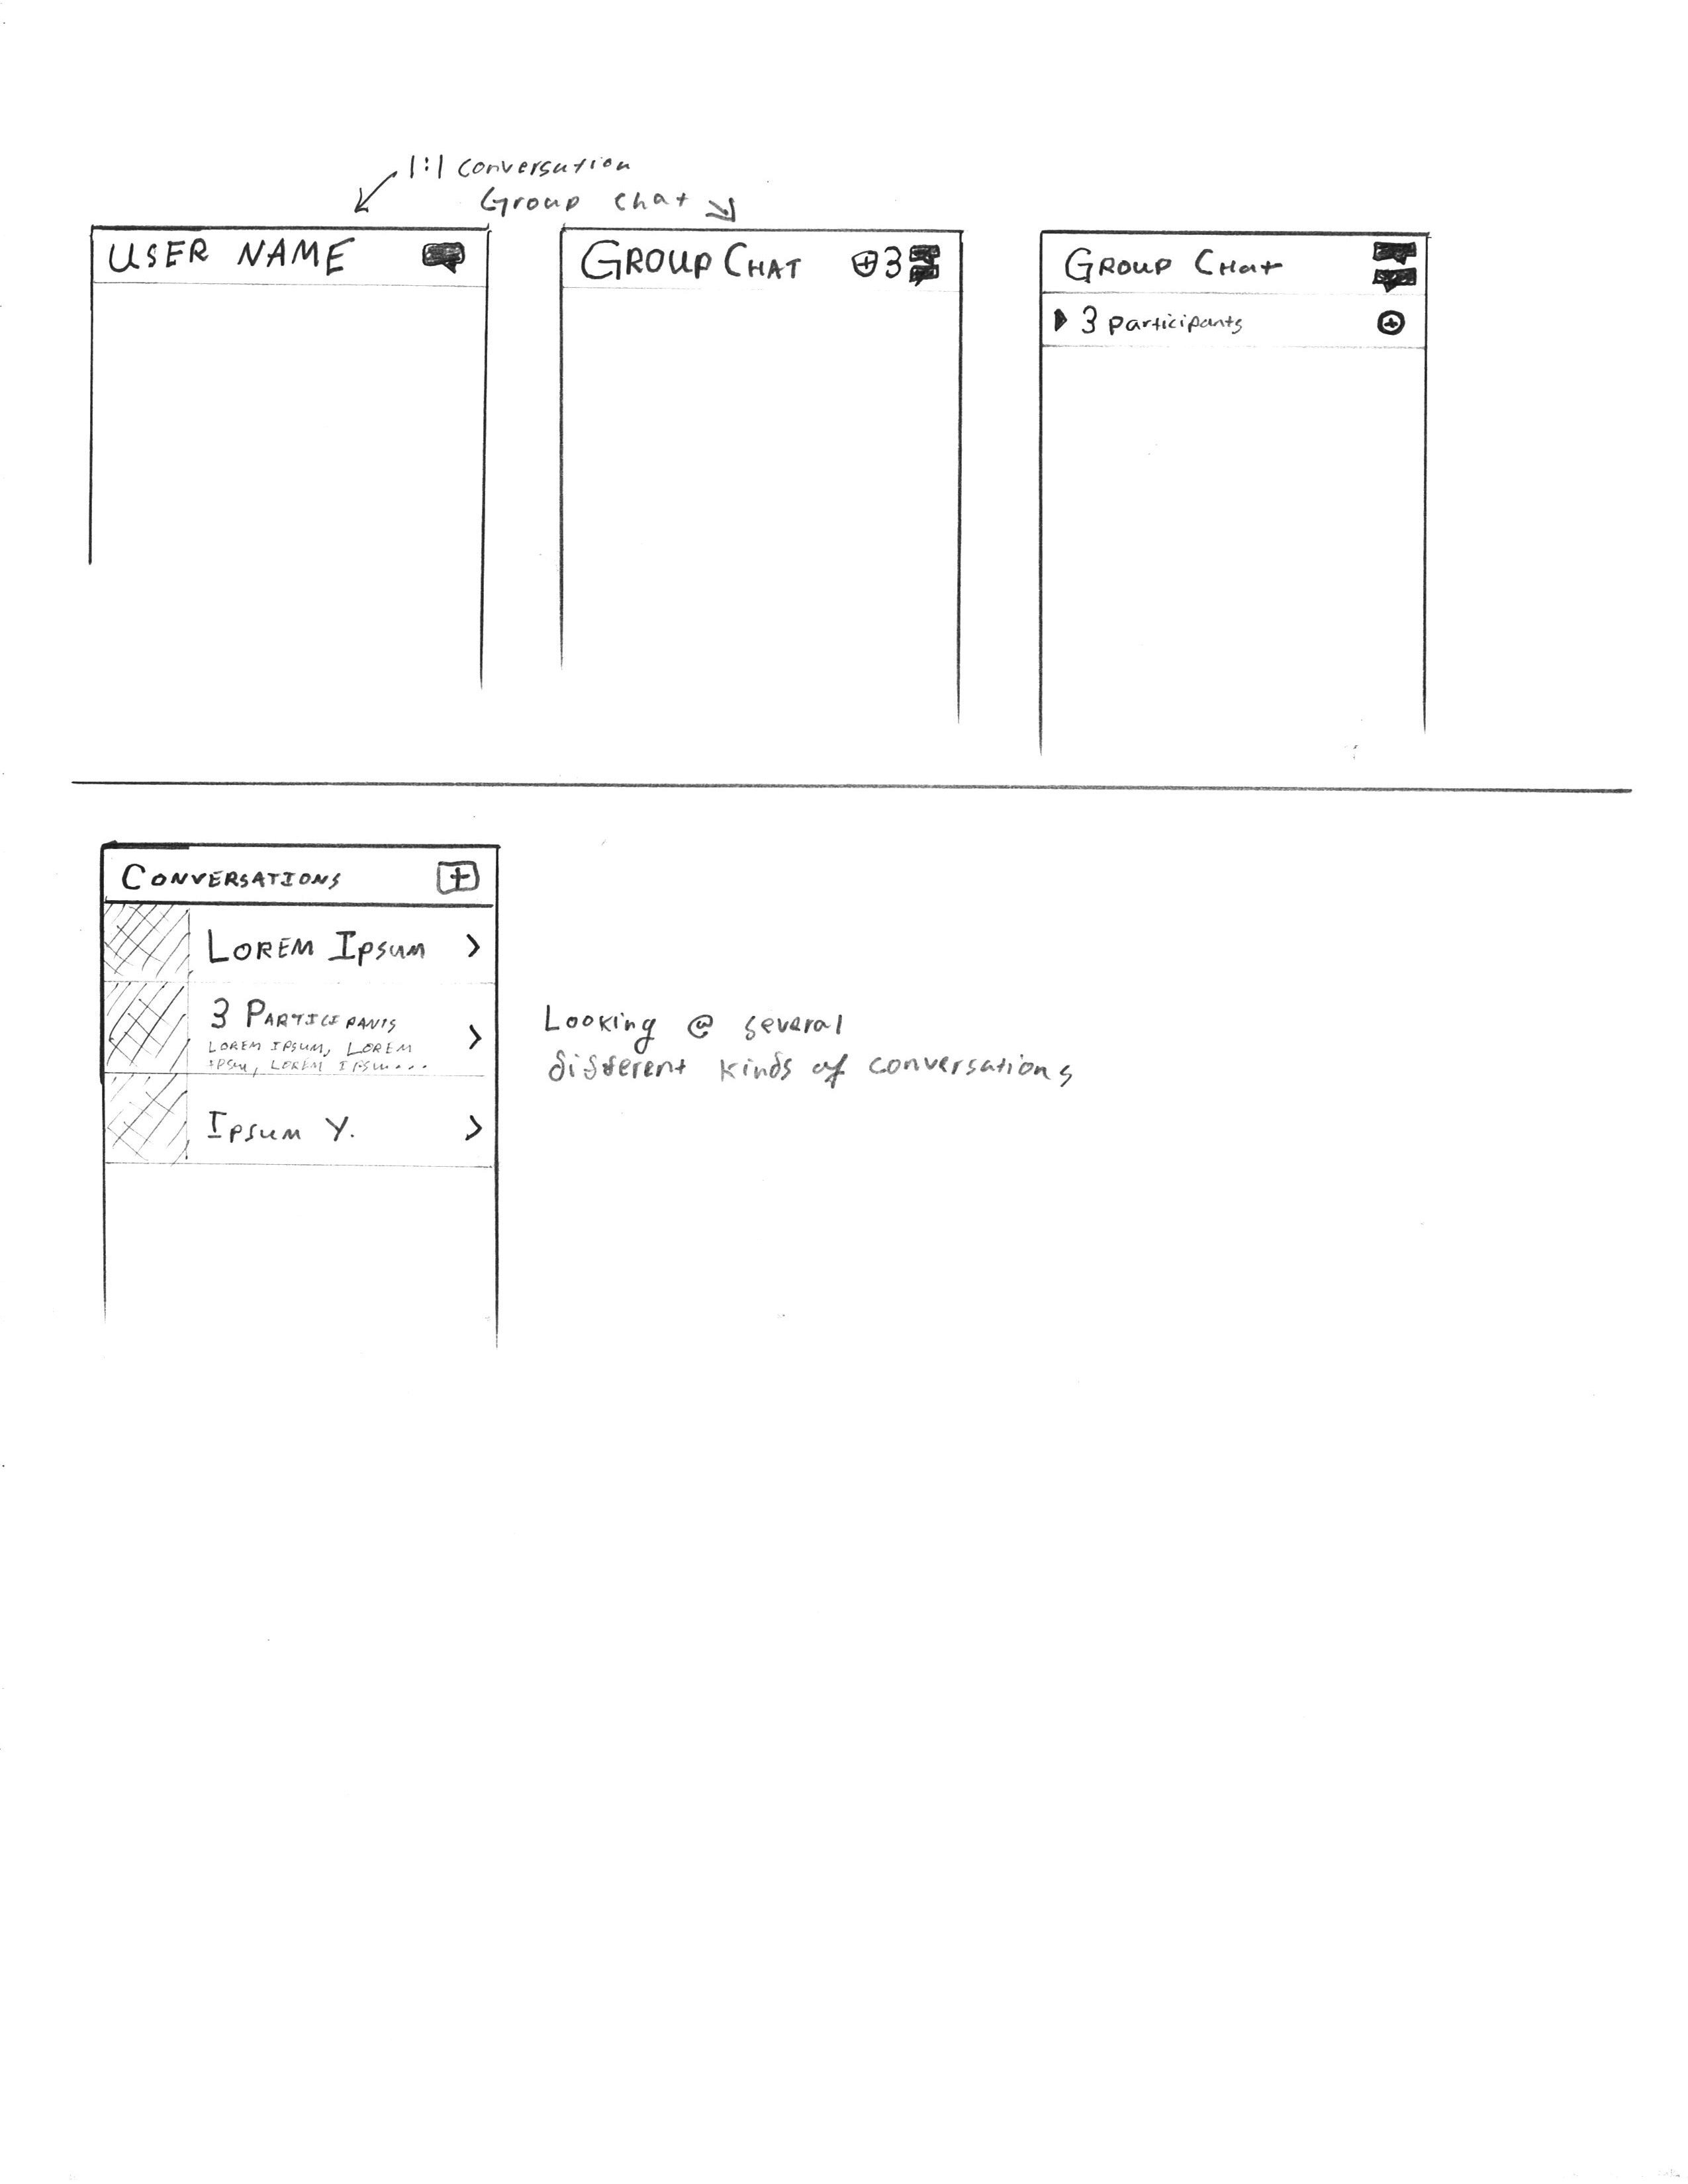 1:1 conversation
Group chat
USER NAME
GROUP CHAT 3
GROUP CHat
3 participants
CONVERSATIONS
LOREM IPSUM
3 PARTICIPANTS
LOREM IPSUM, LOREM
IPSUM, LOREM IPSUM...
IPSUM Y.
Looking @ several
different kinds of conversations